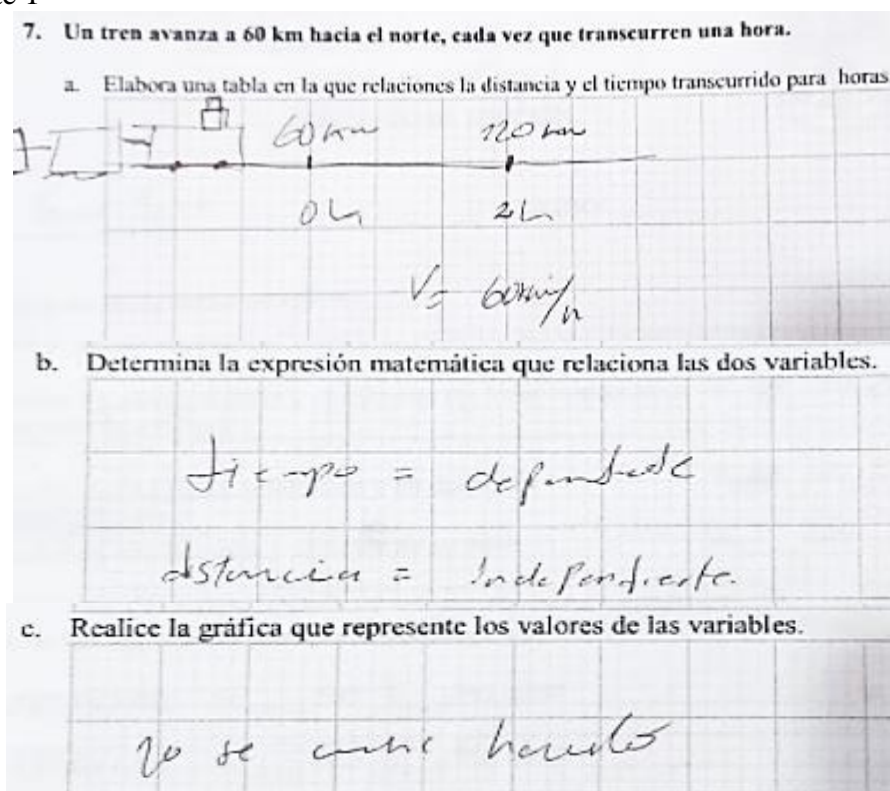 7. Un tren avanza a 60 km hacia el norte, cada vez que transcurren una hora.
a. Elabora una tabla en la que relaciones la distancia y el tiempo transcurrido para horas
60 km 120 km
0 h 2 h
V= 60km/h
b. Determina la expresión matemática que relaciona las dos variables.
tiempo = dependiente
distancia = Independiente.
c. Realice la gráfica que represente los valores de las variables.
no se